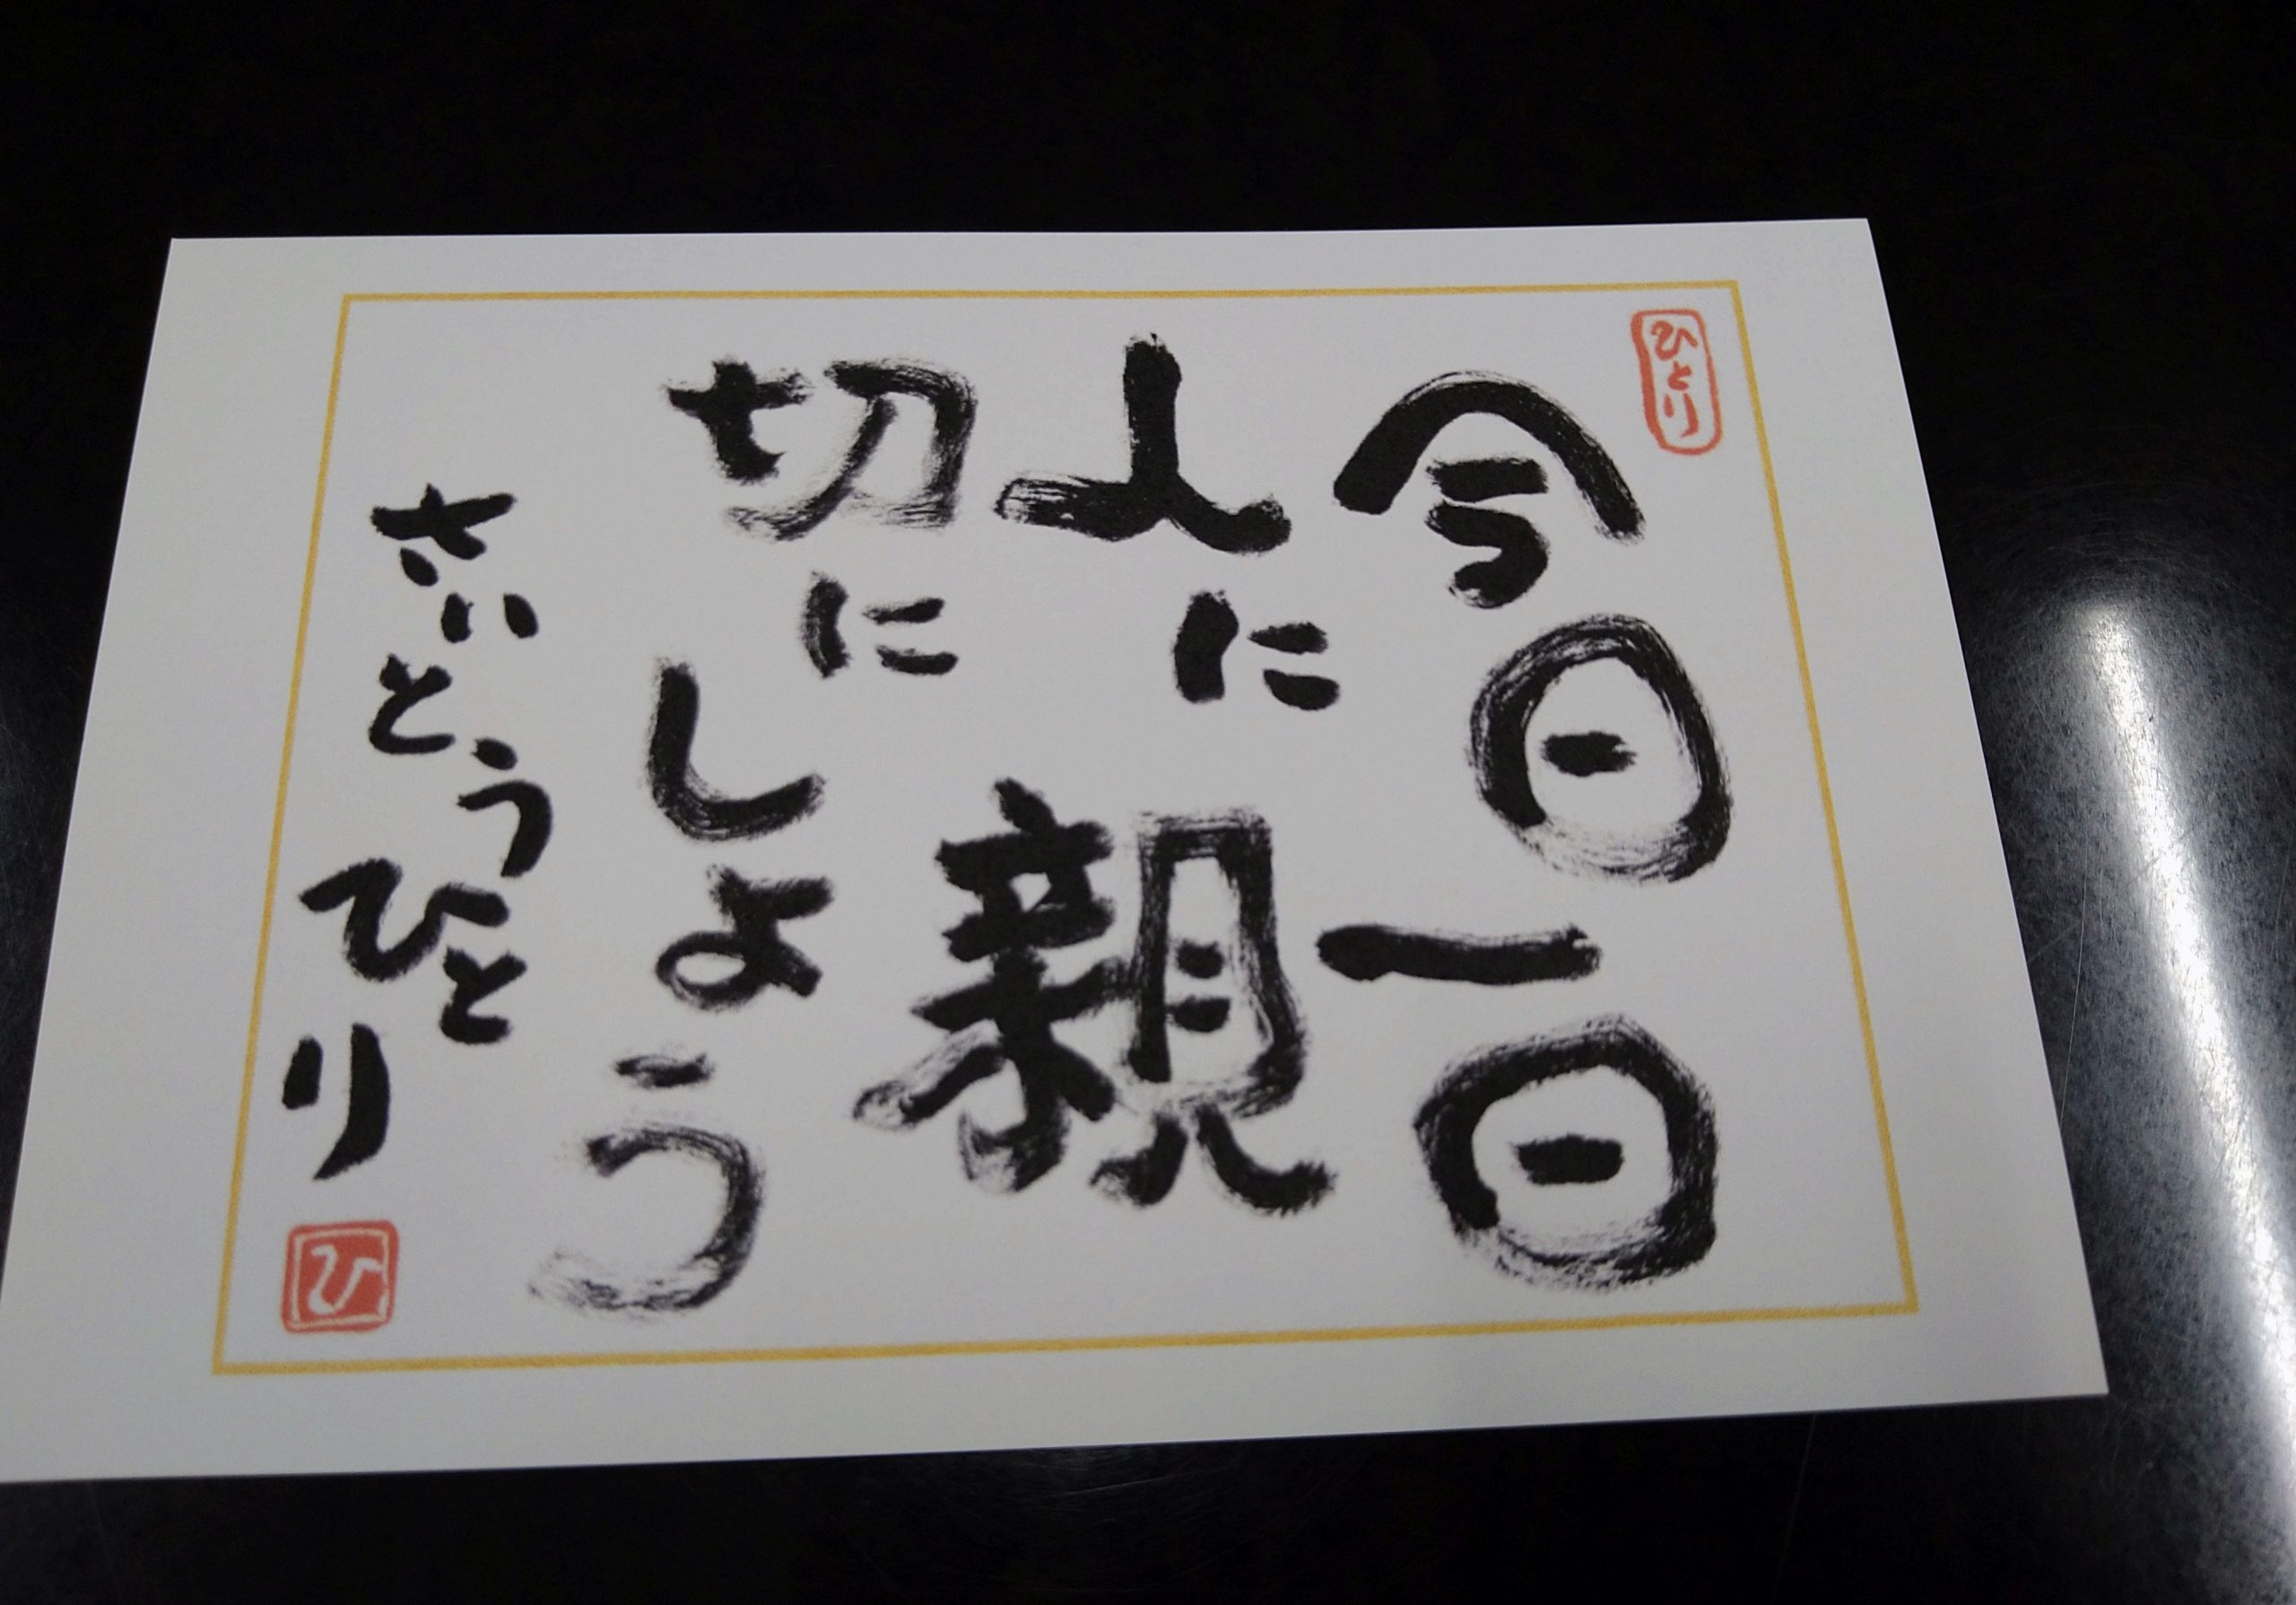 ひとり
今日一日
人に親
切にしょう
さいとうひとり
ひ